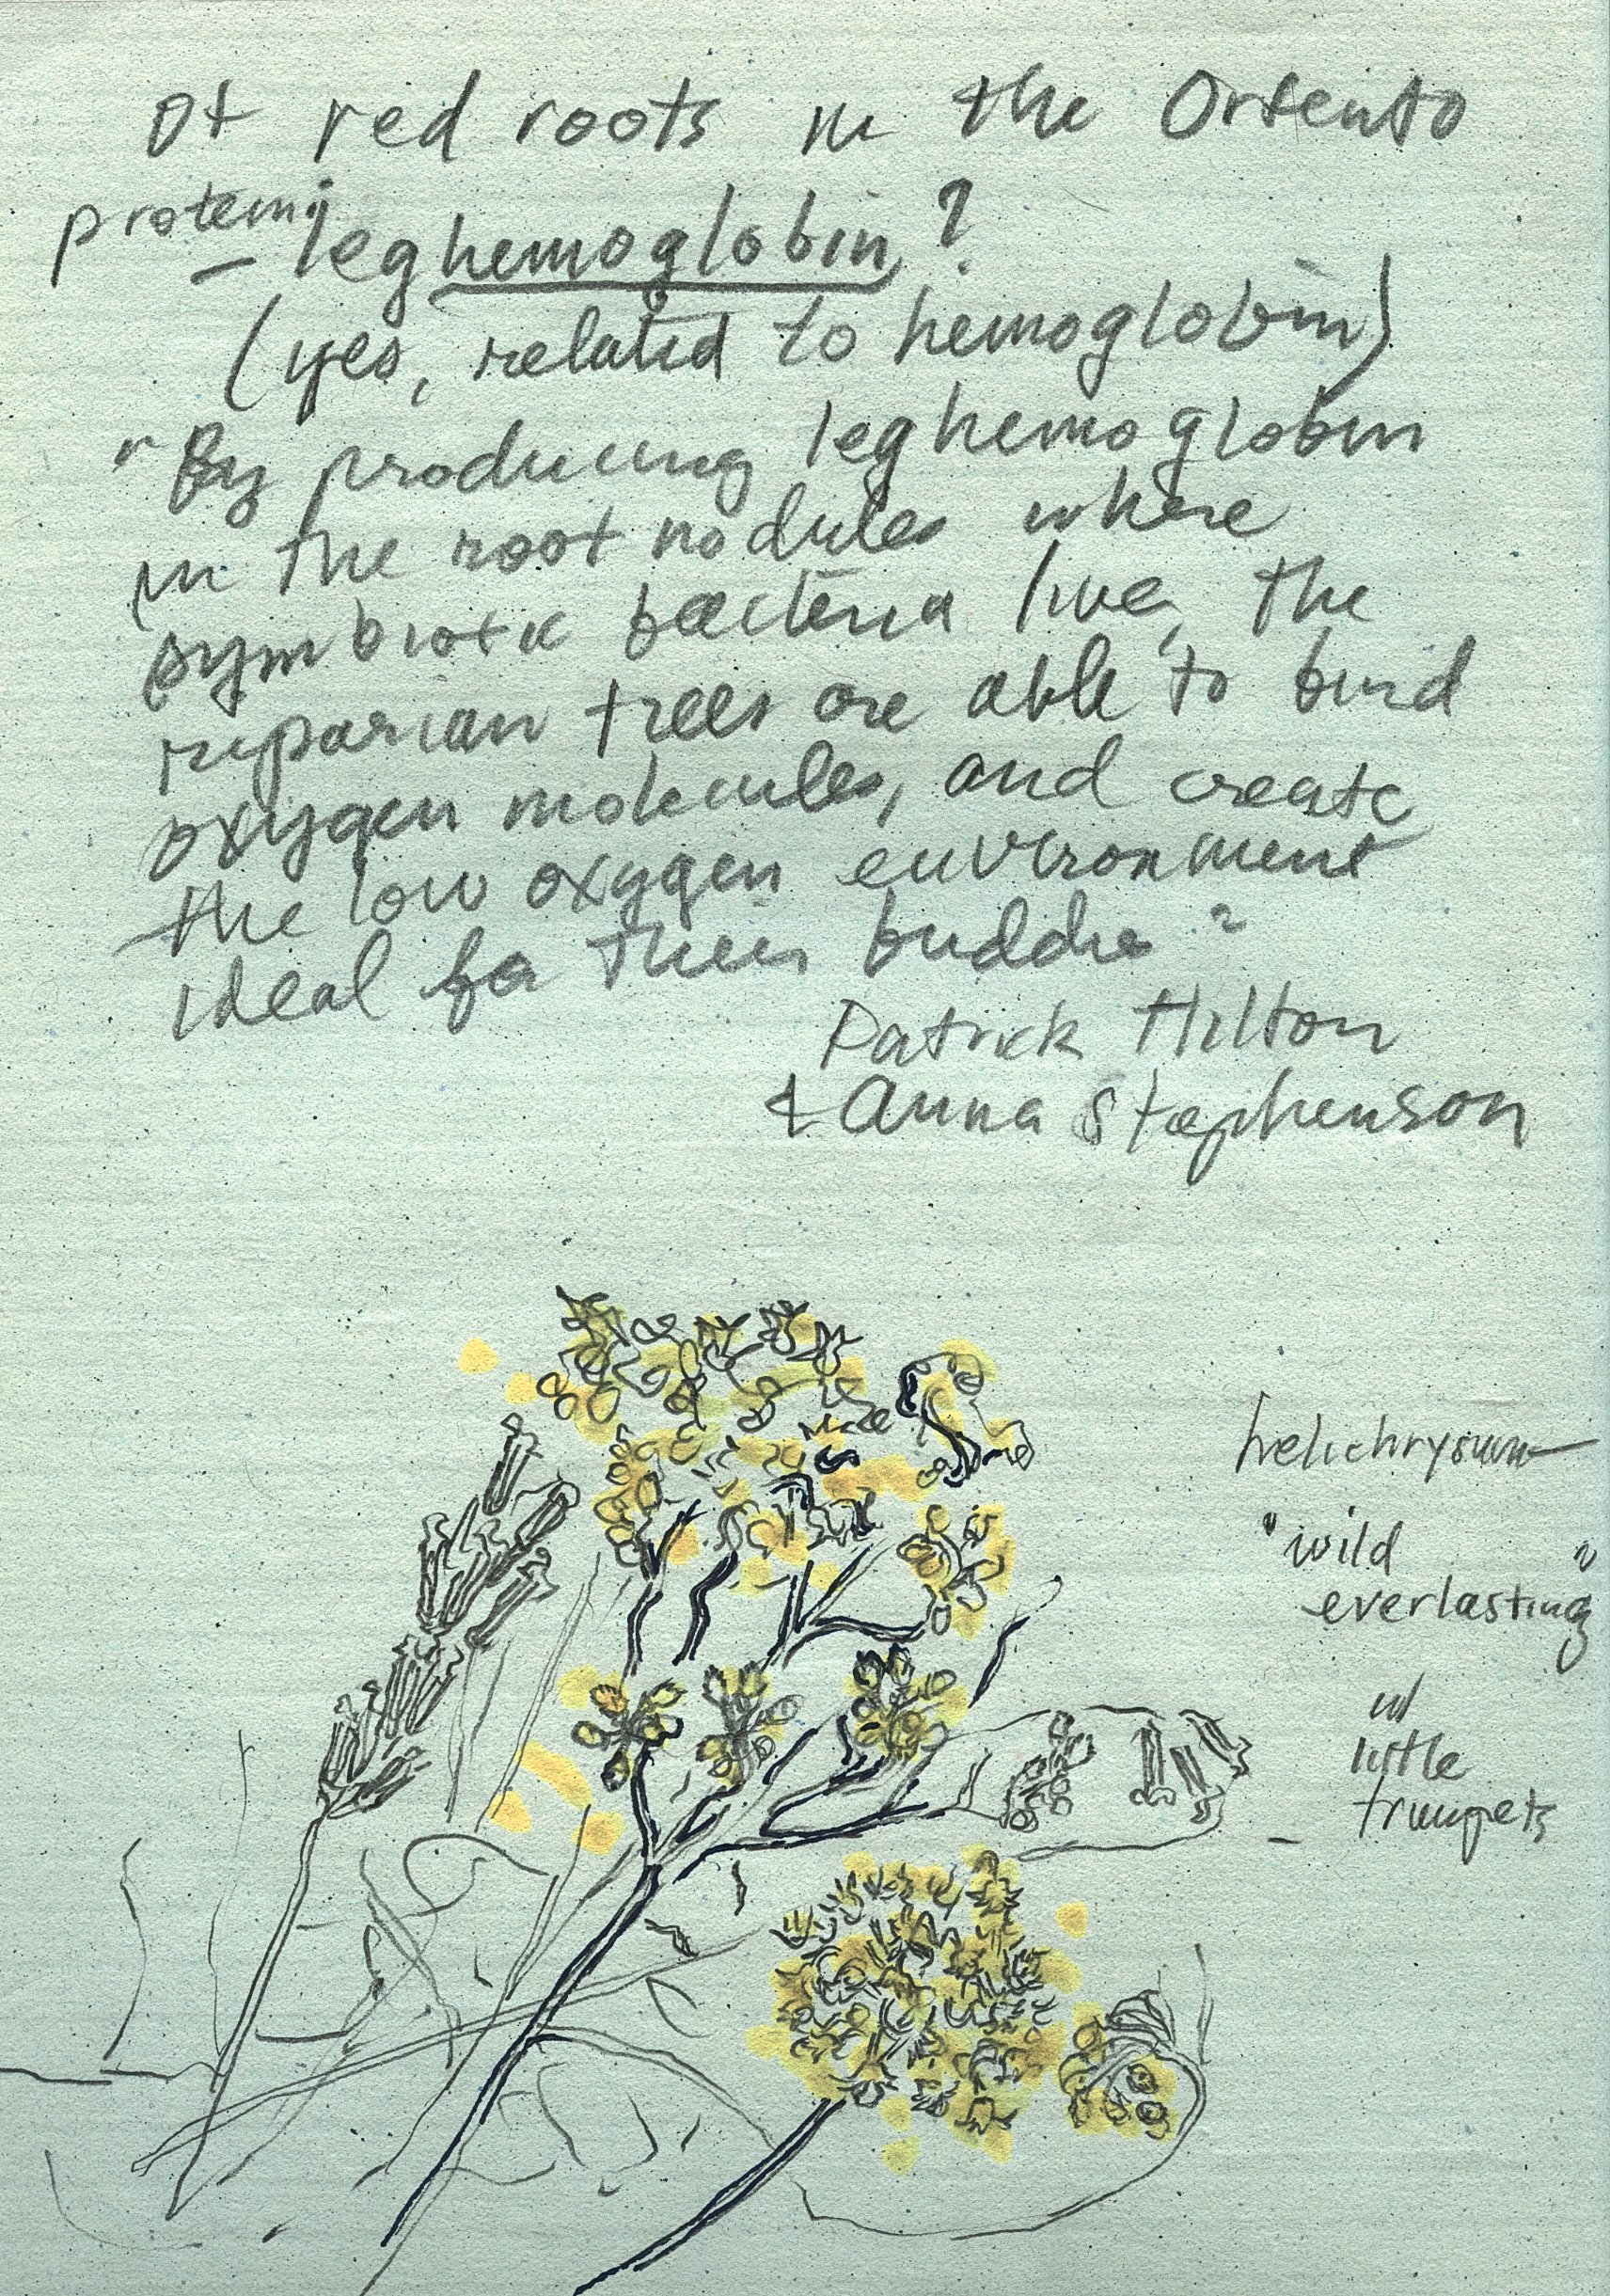 Of red roots in the Orfento
protein:
– leghemoglobin?
(yes, related to hemoglobin)
"By producing leghemoglobin
in the root nodules where
symbiotic bacteria live, the
riparian trees are able to bind
oxygen molecules, and create
the low oxygen environment
ideal for their buddies"
Patrick Hilton
& Anna Stephenson
helichrysum
"wild
everlasting"
w/
little
trumpets